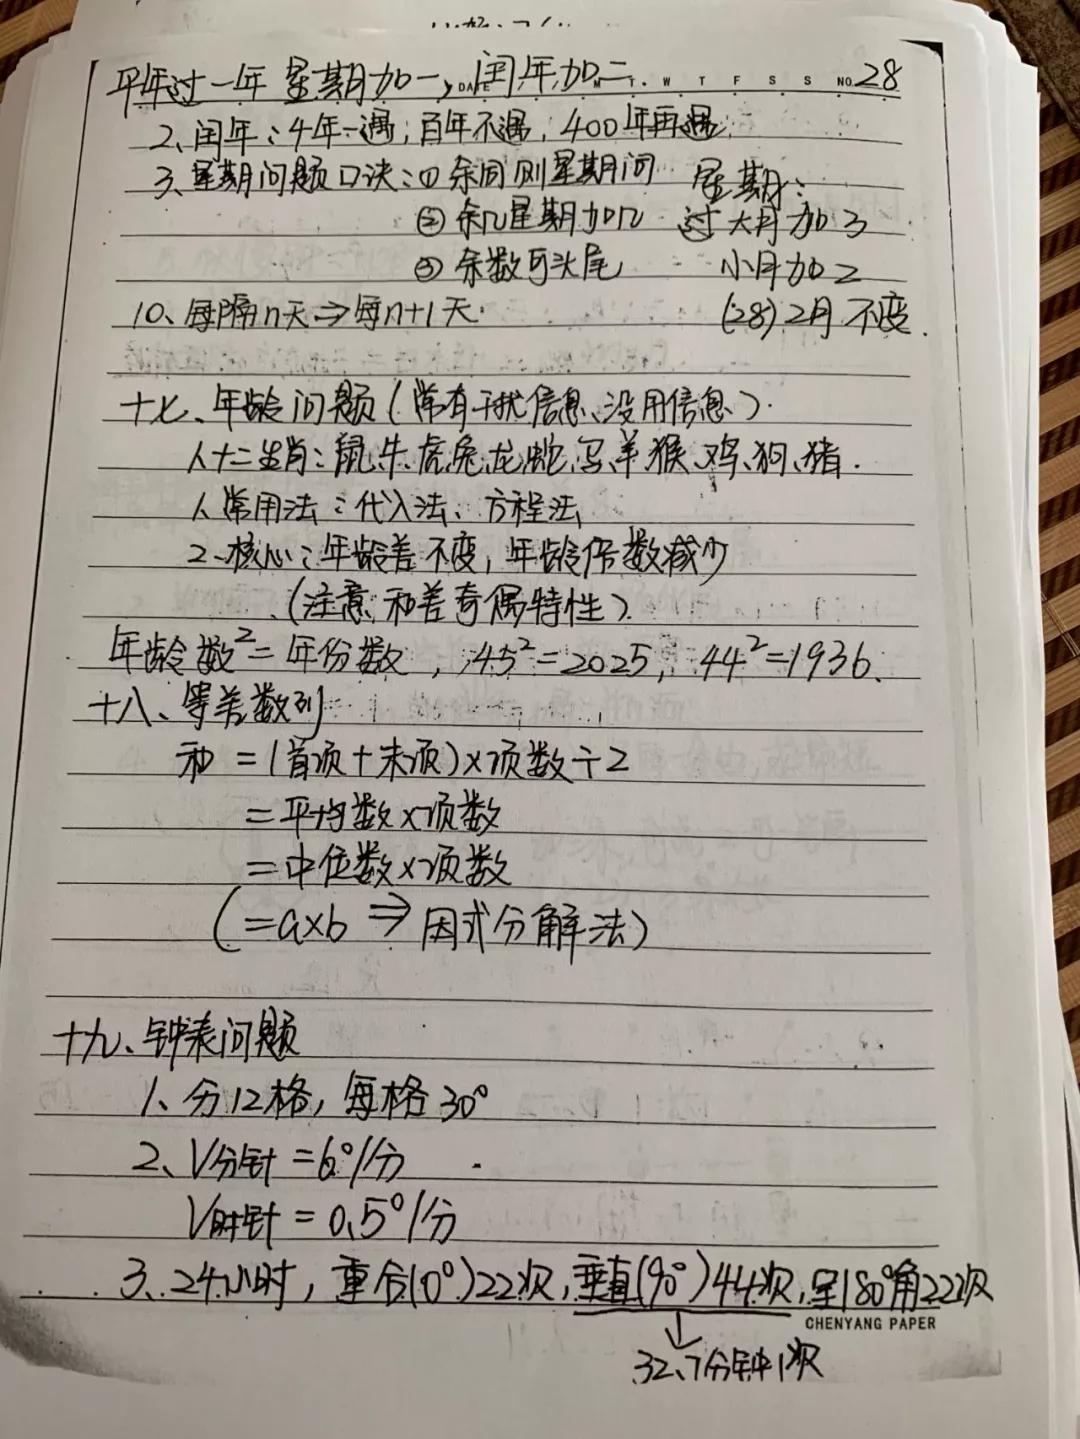 平年过一年 星期加一,闰年加二
DATE M T W T F S S NO. 28
2、闰年:4年一遇,百年不遇,400年再遇
3、星期问题口诀:① 余同则星期同
② 余几星期加几
③ 余数可头尾
星期:
过大月加3
小月加2
(28)2月 不变.
10、每隔n天⇒每n+1天.
十七、年龄问题(常有干扰信息、没用信息).
人十二生肖:鼠、牛、虎、兔、龙、蛇、马、羊、猴、鸡、狗、猪.
1、常用法:代入法、方程法
2、核心:年龄差不变,年龄倍数减少
(注意:和差奇偶特性)
年龄数²=年份数,45²=2025,44²=1936.
十八、等差数列
和 =(首项+末项)×项数÷2
=平均数×项数
=中位数×项数
(=a×b ⇒ 因式分解法)
十九、钟表问题
1、分12格,每格30°
2、V分针=6°/分
V时针=0.5°/分
3、24小时,重合(0°)22次,垂直(90°)44次,呈180°角22次
CHENYANG PAPER
32.7分钟1次